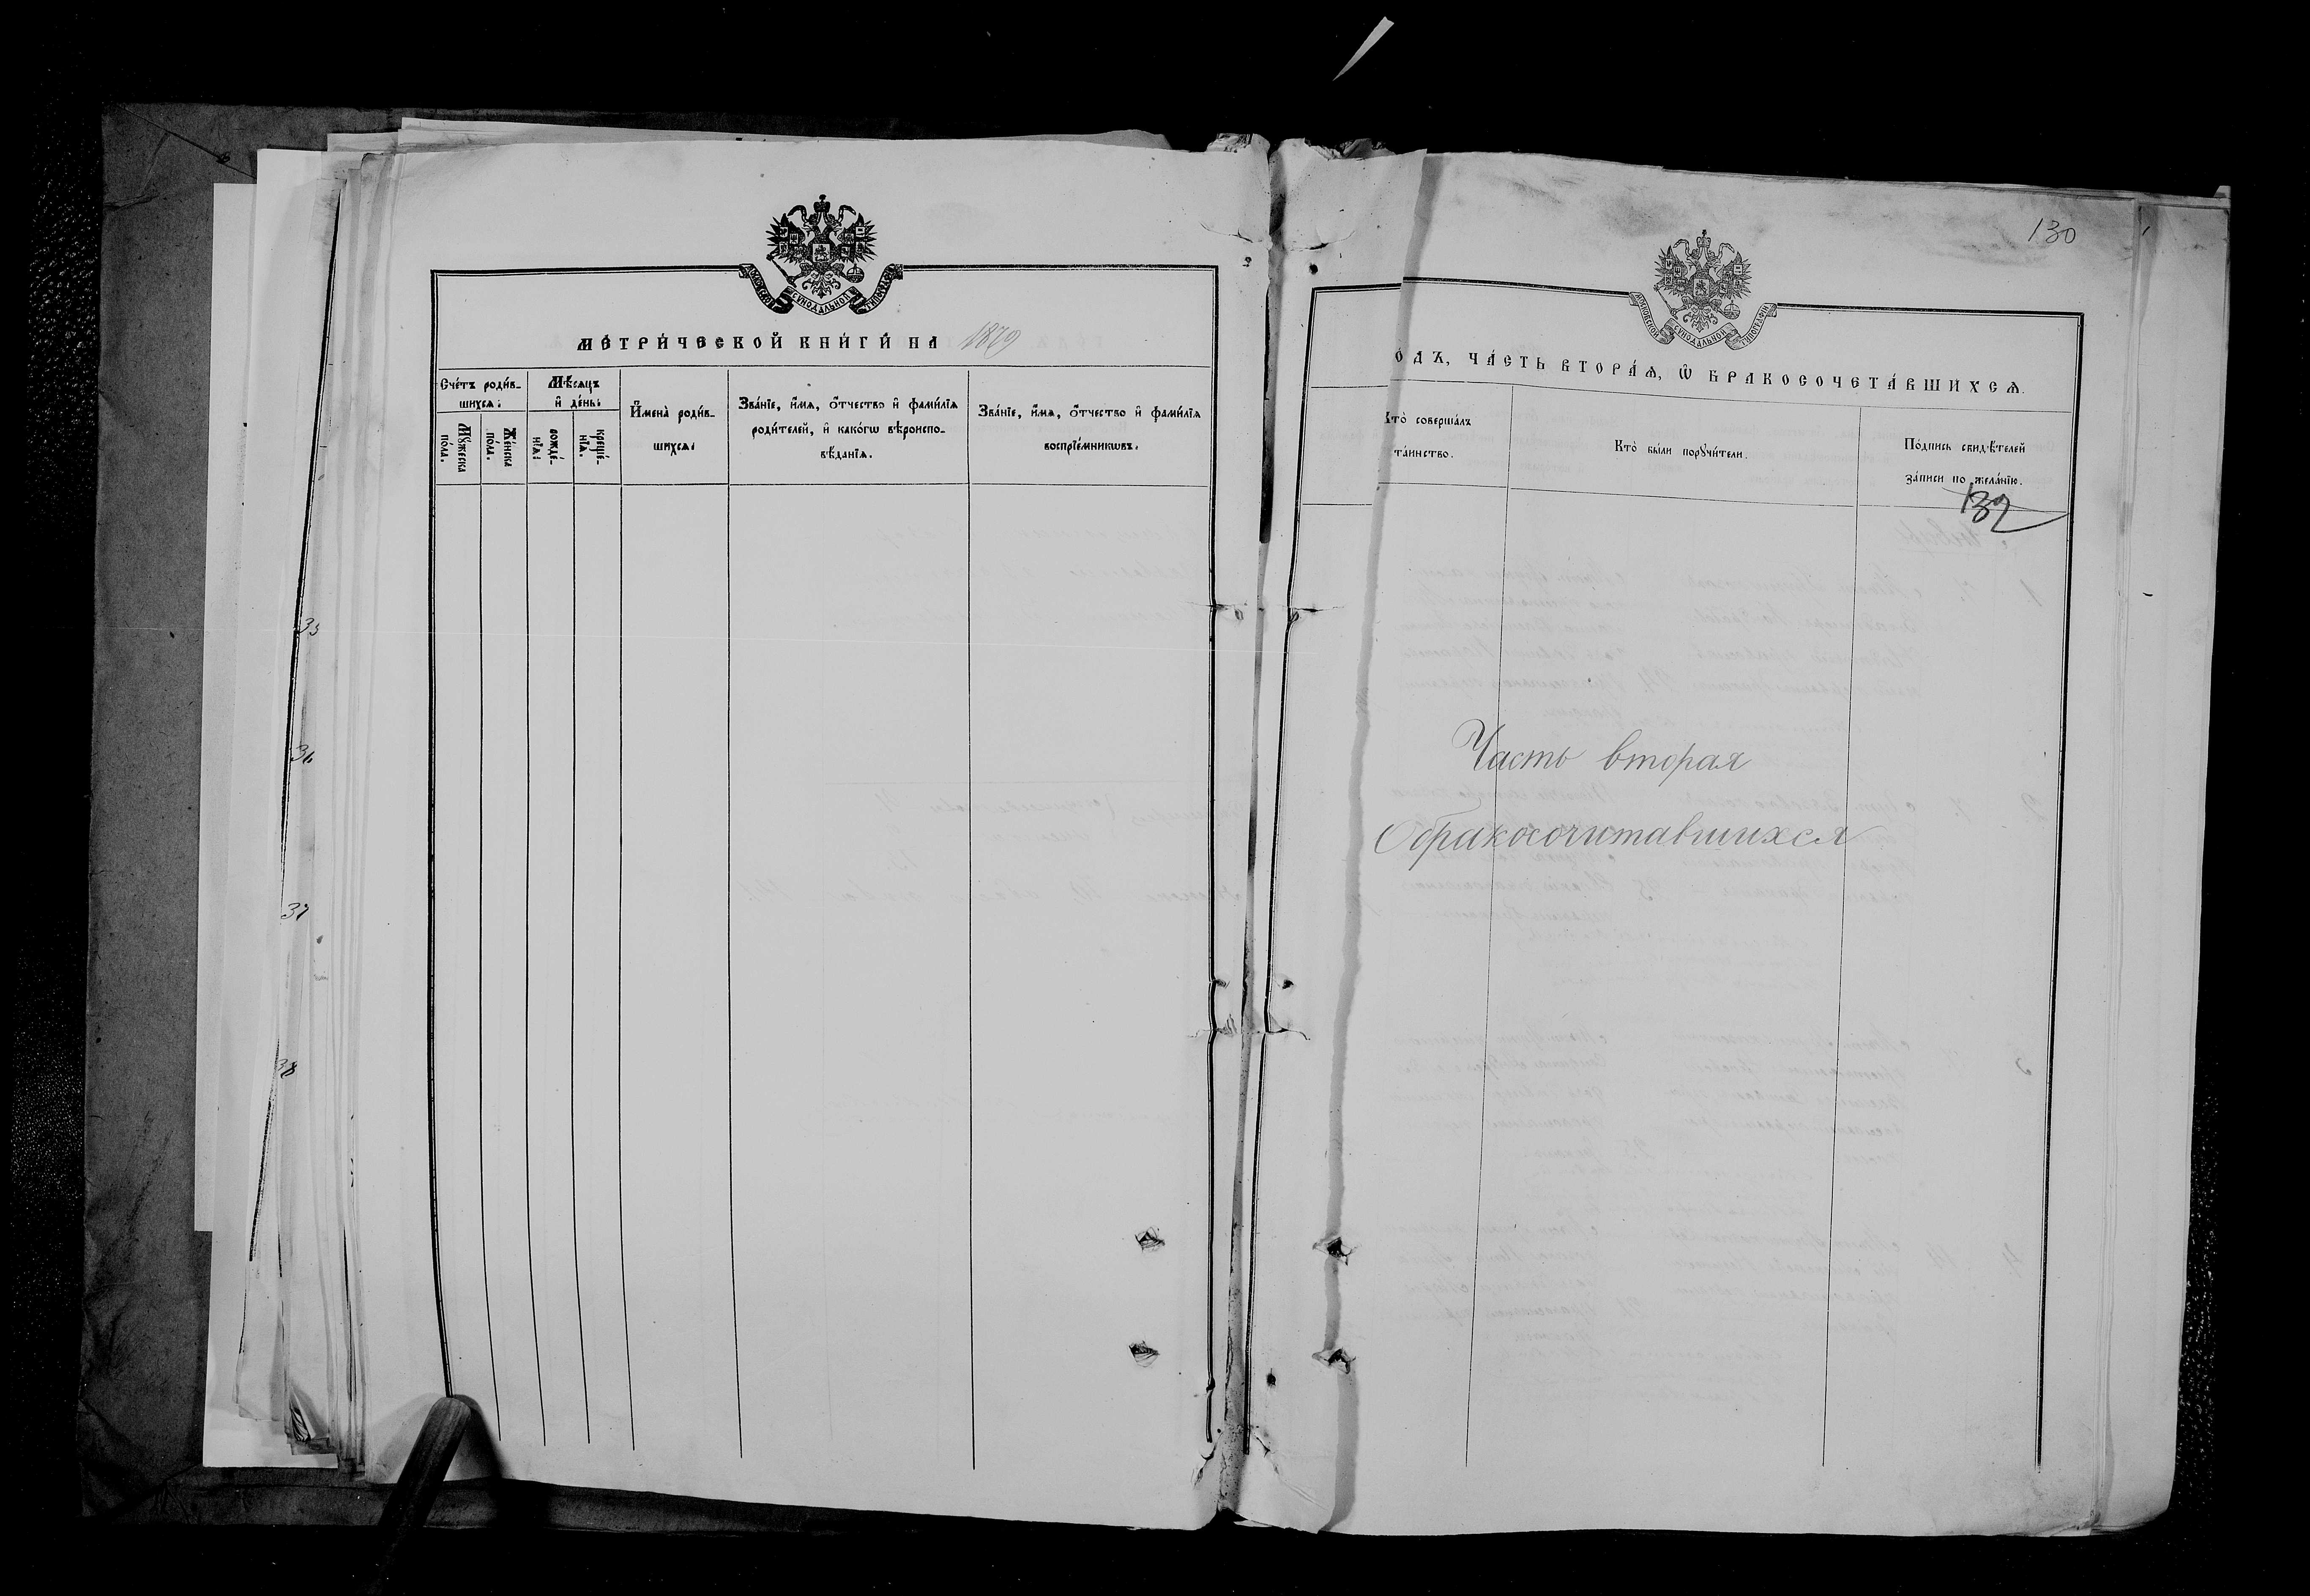 МОСКОВСКОЙ СУНОДАЛЬНОЙ ТИПОГРАФІИ
МЕТРИ́ЧЕСКОЙ КНИ́ГИ НА 1879
Сче́тъ роди́в-
шихся:
Мꙋ́жеска
по́ла.
Же́нска
по́ла.
Мѣ́сяцъ
и де́нь:
рожде́-
нїѧ:
креще́-
нїѧ.
И҆мена̀ роди́в-
шихсѧ:
Зва́нїе, и҆́мѧ, ѻ҆́тчество и҆ фами́лїѧ
роди́телей, и҆ како́гѡ вѣроиспо-
вѣ́данїѧ.
Зва́нїе, и҆́мѧ, ѻ҆́тчество и҆ фами́лїѧ
воспрїе́мникѡвъ.
35
36
37
38
130
МОСКОВСКОЙ СУНОДАЛЬНОЙ ТИПОГРАФІИ
О́ДЪ, ЧА́СТЬ ВТОРА́Ѧ, Ѡ҆ БРАКОСОЧЕТА́ВШИХСѦ.
Кто̀ соверша́лъ
та́инство.
Кто̀ бы́ли порꙋчи́тели.
По́дпись свидѣ́телей
за́писи по жела́нїю.
132
Часть вторая
О бракосочитавшихся